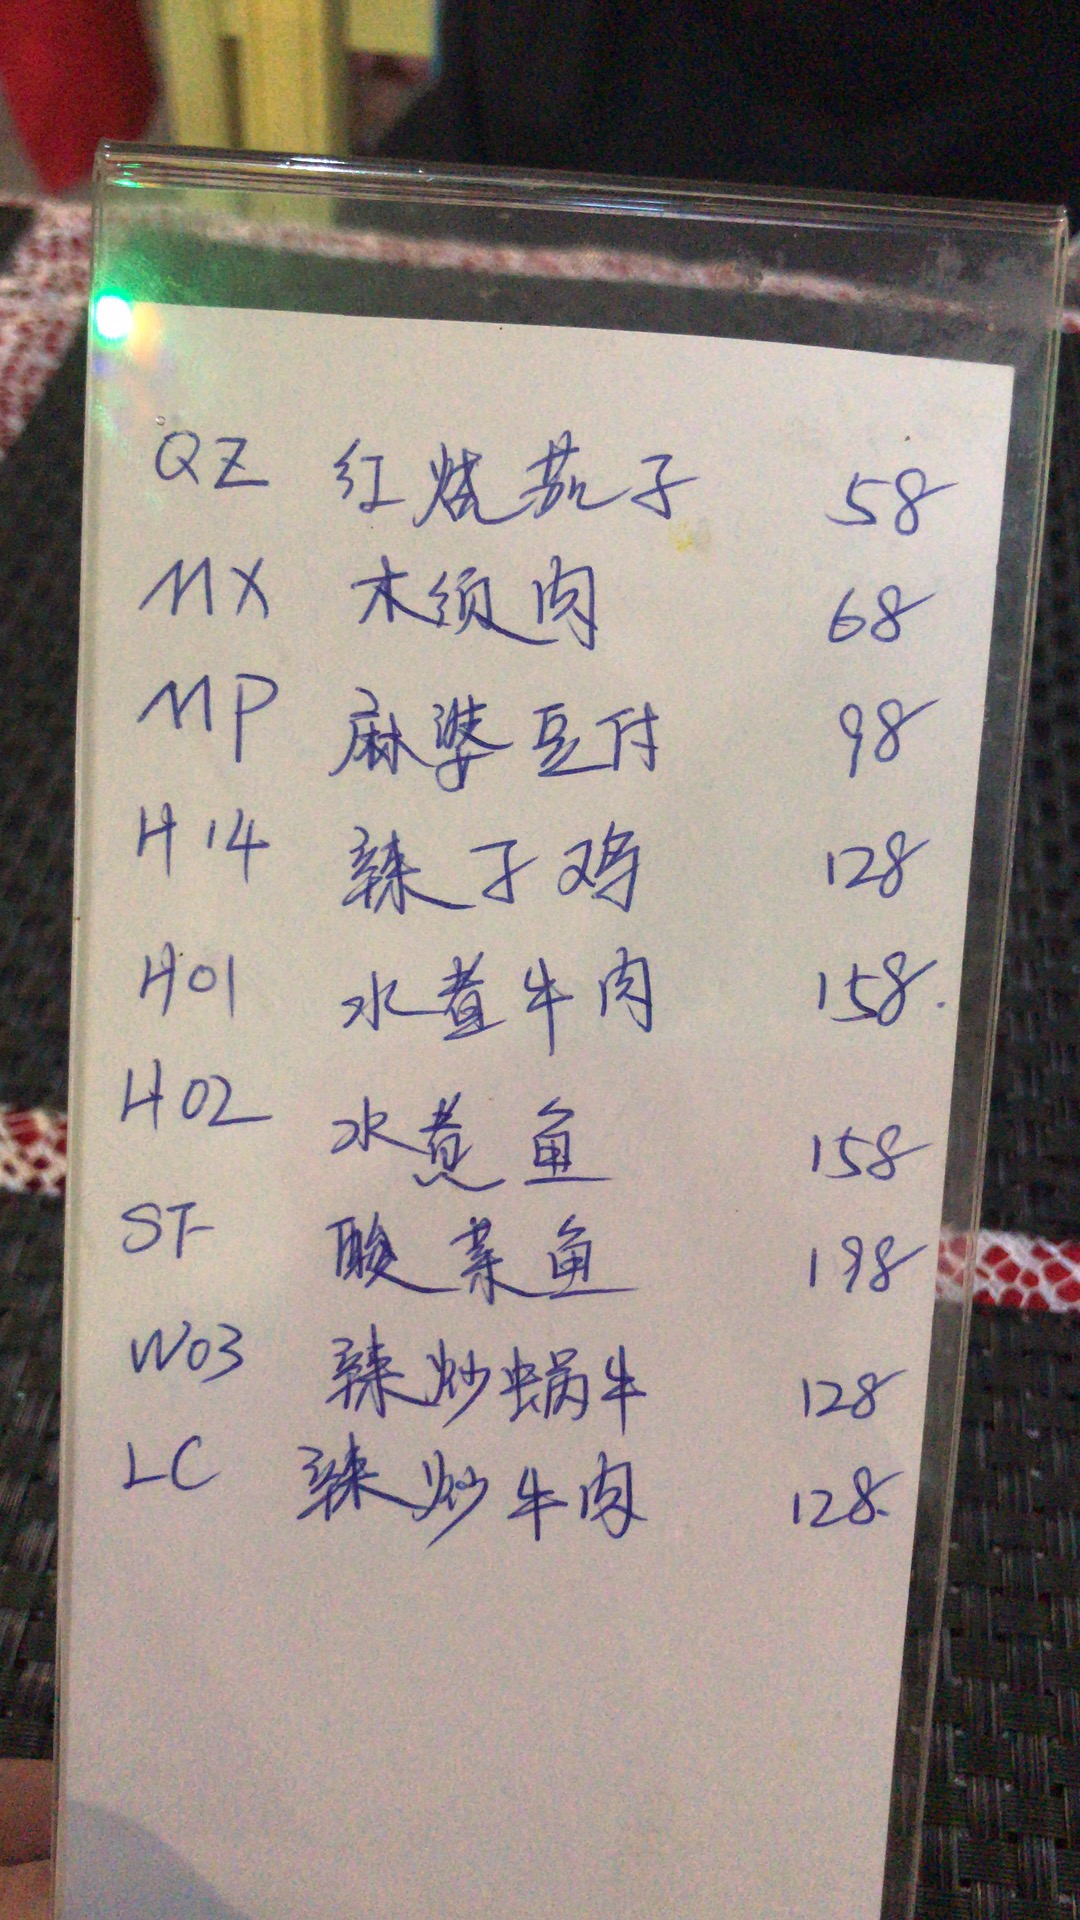 QZ 红烧茄子 58
MX 木须肉 68
MP 麻婆豆付 98
H14 辣子鸡 128
H01 水煮牛肉 158.
H02 水煮鱼 158
ST 酸菜鱼 198
W03 辣炒蜗牛 128
LC 辣炒牛肉 128.